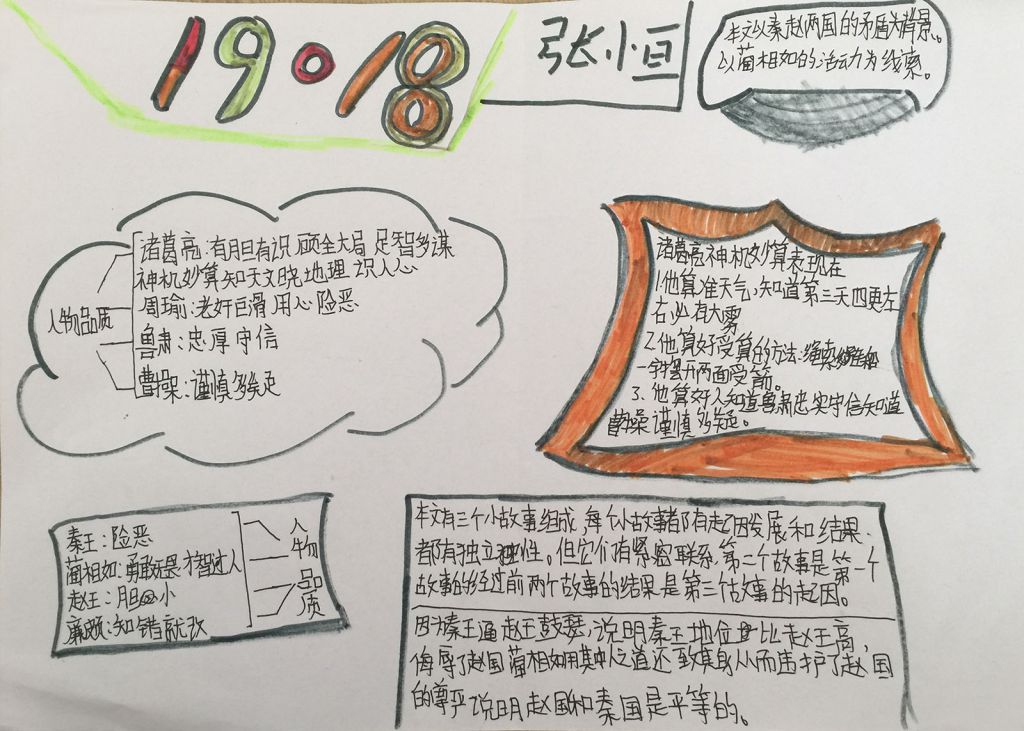 19·18
张小恒
本文以秦赵两国的矛盾为背景。
以蔺相如的活动力为线索。
人物品质
诸葛亮:有胆有识 顾全大局 足智多谋
神机妙算知天文晓地理 识人心
周瑜:老奸巨滑 用心险恶
鲁肃:忠厚守信
曹操:谨慎多疑
诸葛亮神机妙算表现在
1.他算准天气,知道第三天四更左
右,必有大雾
2.他算好受箅的方法:
一字摆开两面受箭。
3、他算好人知道鲁肃忠实守信知道
曹操谨慎多疑。
秦王:险恶
蔺相如:勇敢无畏 才智过人
赵王:胆小
廉颇:知错就改
人物品质
本文有三个小故事组成,每个小故事都有起因发展和结果.
都有独立性。但它们有紧密联系,第二个故事是第一个
故事的经过前两个故事的结果是第三个故事的起因。
因为秦王逼赵王鼓瑟,说明秦王地位比赵王高,
侮辱了赵国蔺相如用其中人之道还至其身从而维护了赵国
的尊严说明赵国和秦国是平等的。